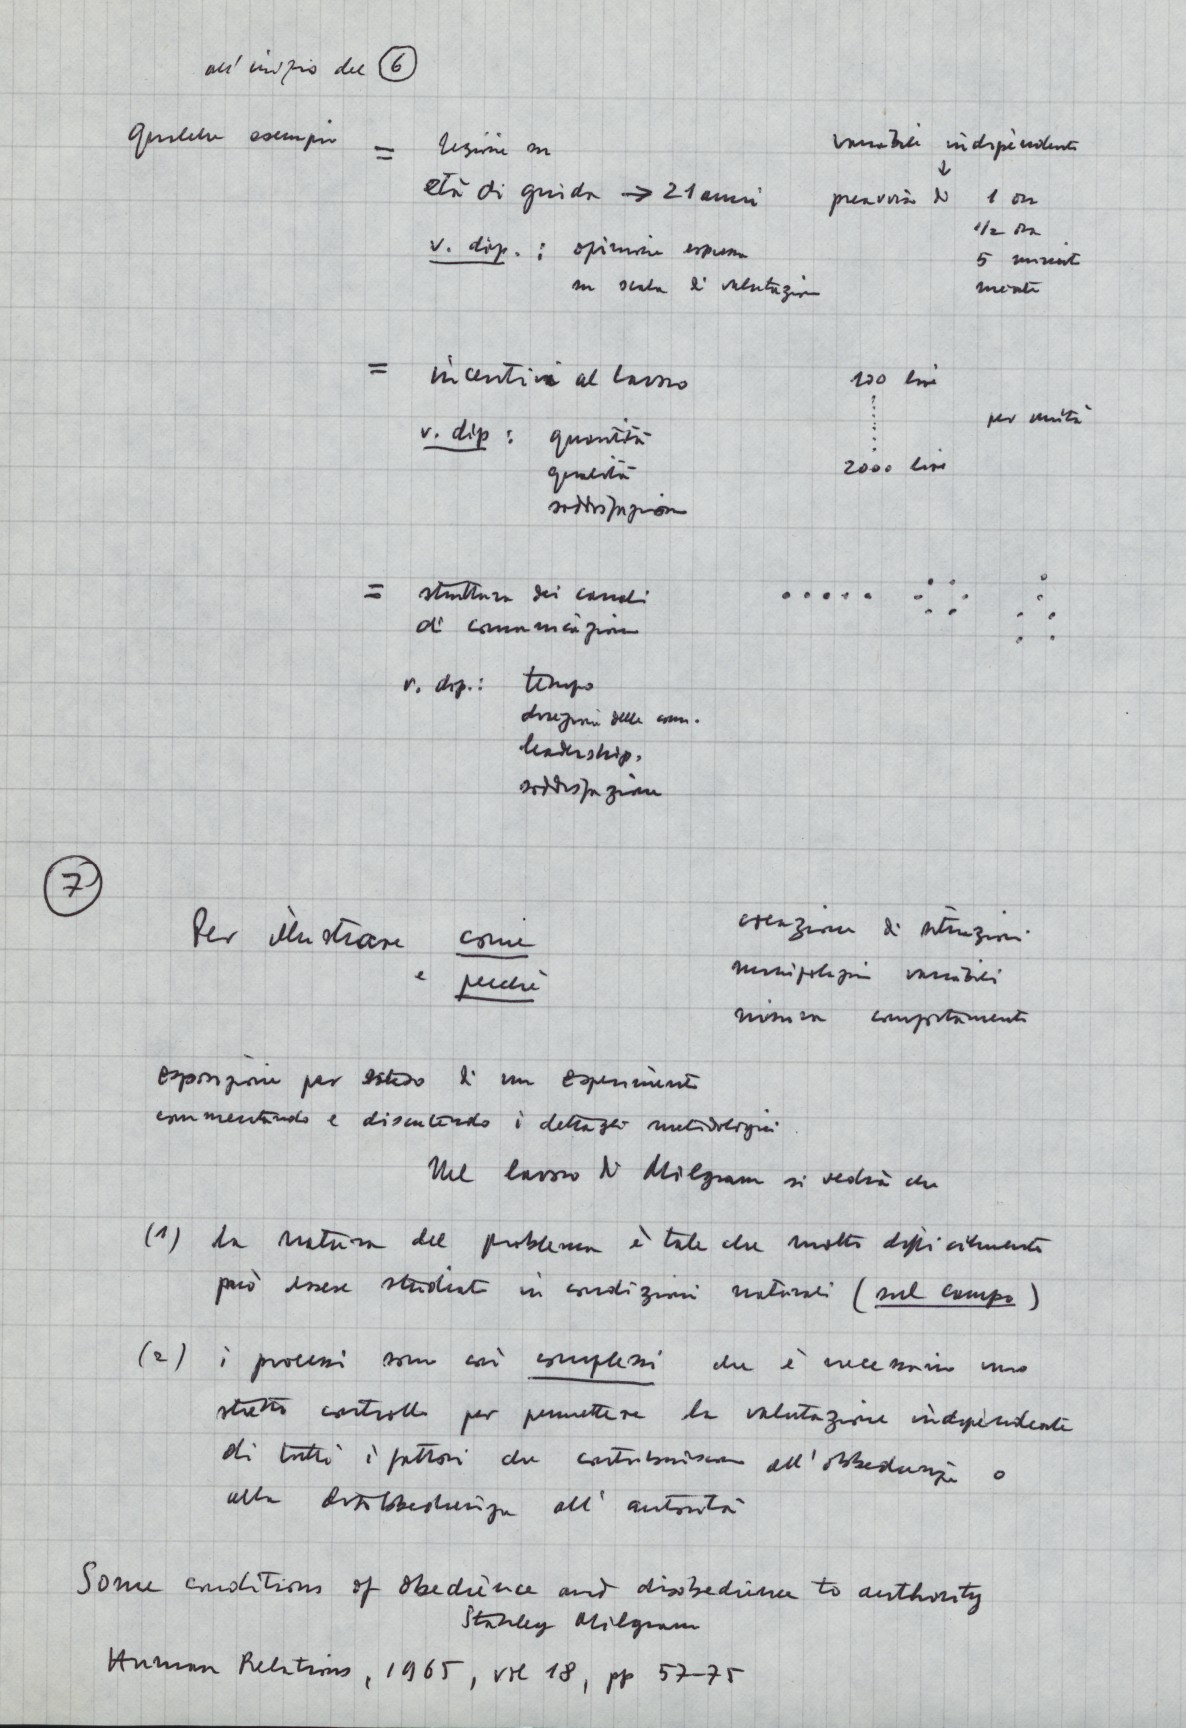 all'inizio del 6
Qualche esempio = lezione su
età di guida → 21 anni
v. dip. : opinione espressa
su scala di valutazione
variabili indipendenti
↓
preavviso di 1 ora
1/2 ora
5 minuti
niente
= incentivi al lavoro
v. dip : quantità
qualità
soddisfazione
100 lire
per unità
2000 lire
= struttura dei canali
di comunicazione
v. dip.: tempo
direzione delle com.
leadership.
soddisfazione
7
Per illustrare come
e perché
creazione di situazioni
manipolazioni variabili
misura comportamento
esposizione per esteso di un esperimento
commentando e discutendo i dettagli metodologici.
Nel lavoro di Milgram si vedrà che
(1) la natura del problema è tale che molto difficilmente
può essere studiato in condizioni naturali (sul campo)
(2) i processi sono così complessi che è necessario uno
stretto controllo per permettere la valutazione indipendente
di tutti i fattori che contribuiscono all'obbedienza o
alla disobbedienza all'autorità
Some conditions of obedience and disobedience to authority
Stanley Milgram
Human Relations, 1965, vol 18, pp 57-75